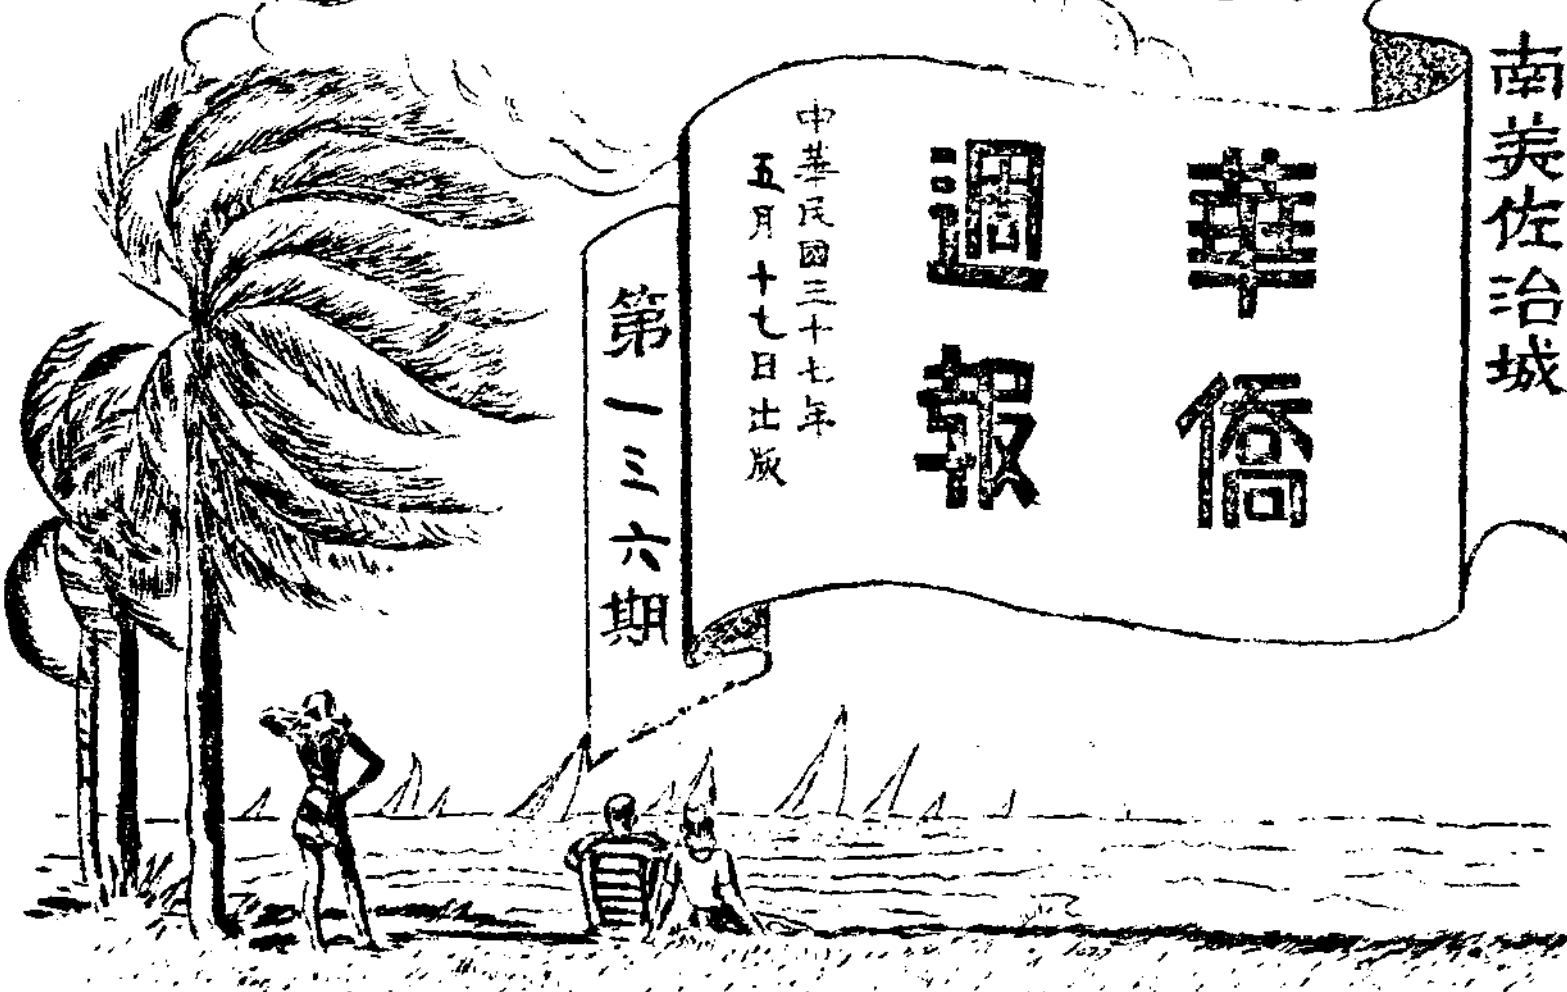 南美佐治城
華僑
週報
中華民國三十七年
五月十七日出版
第一三六期